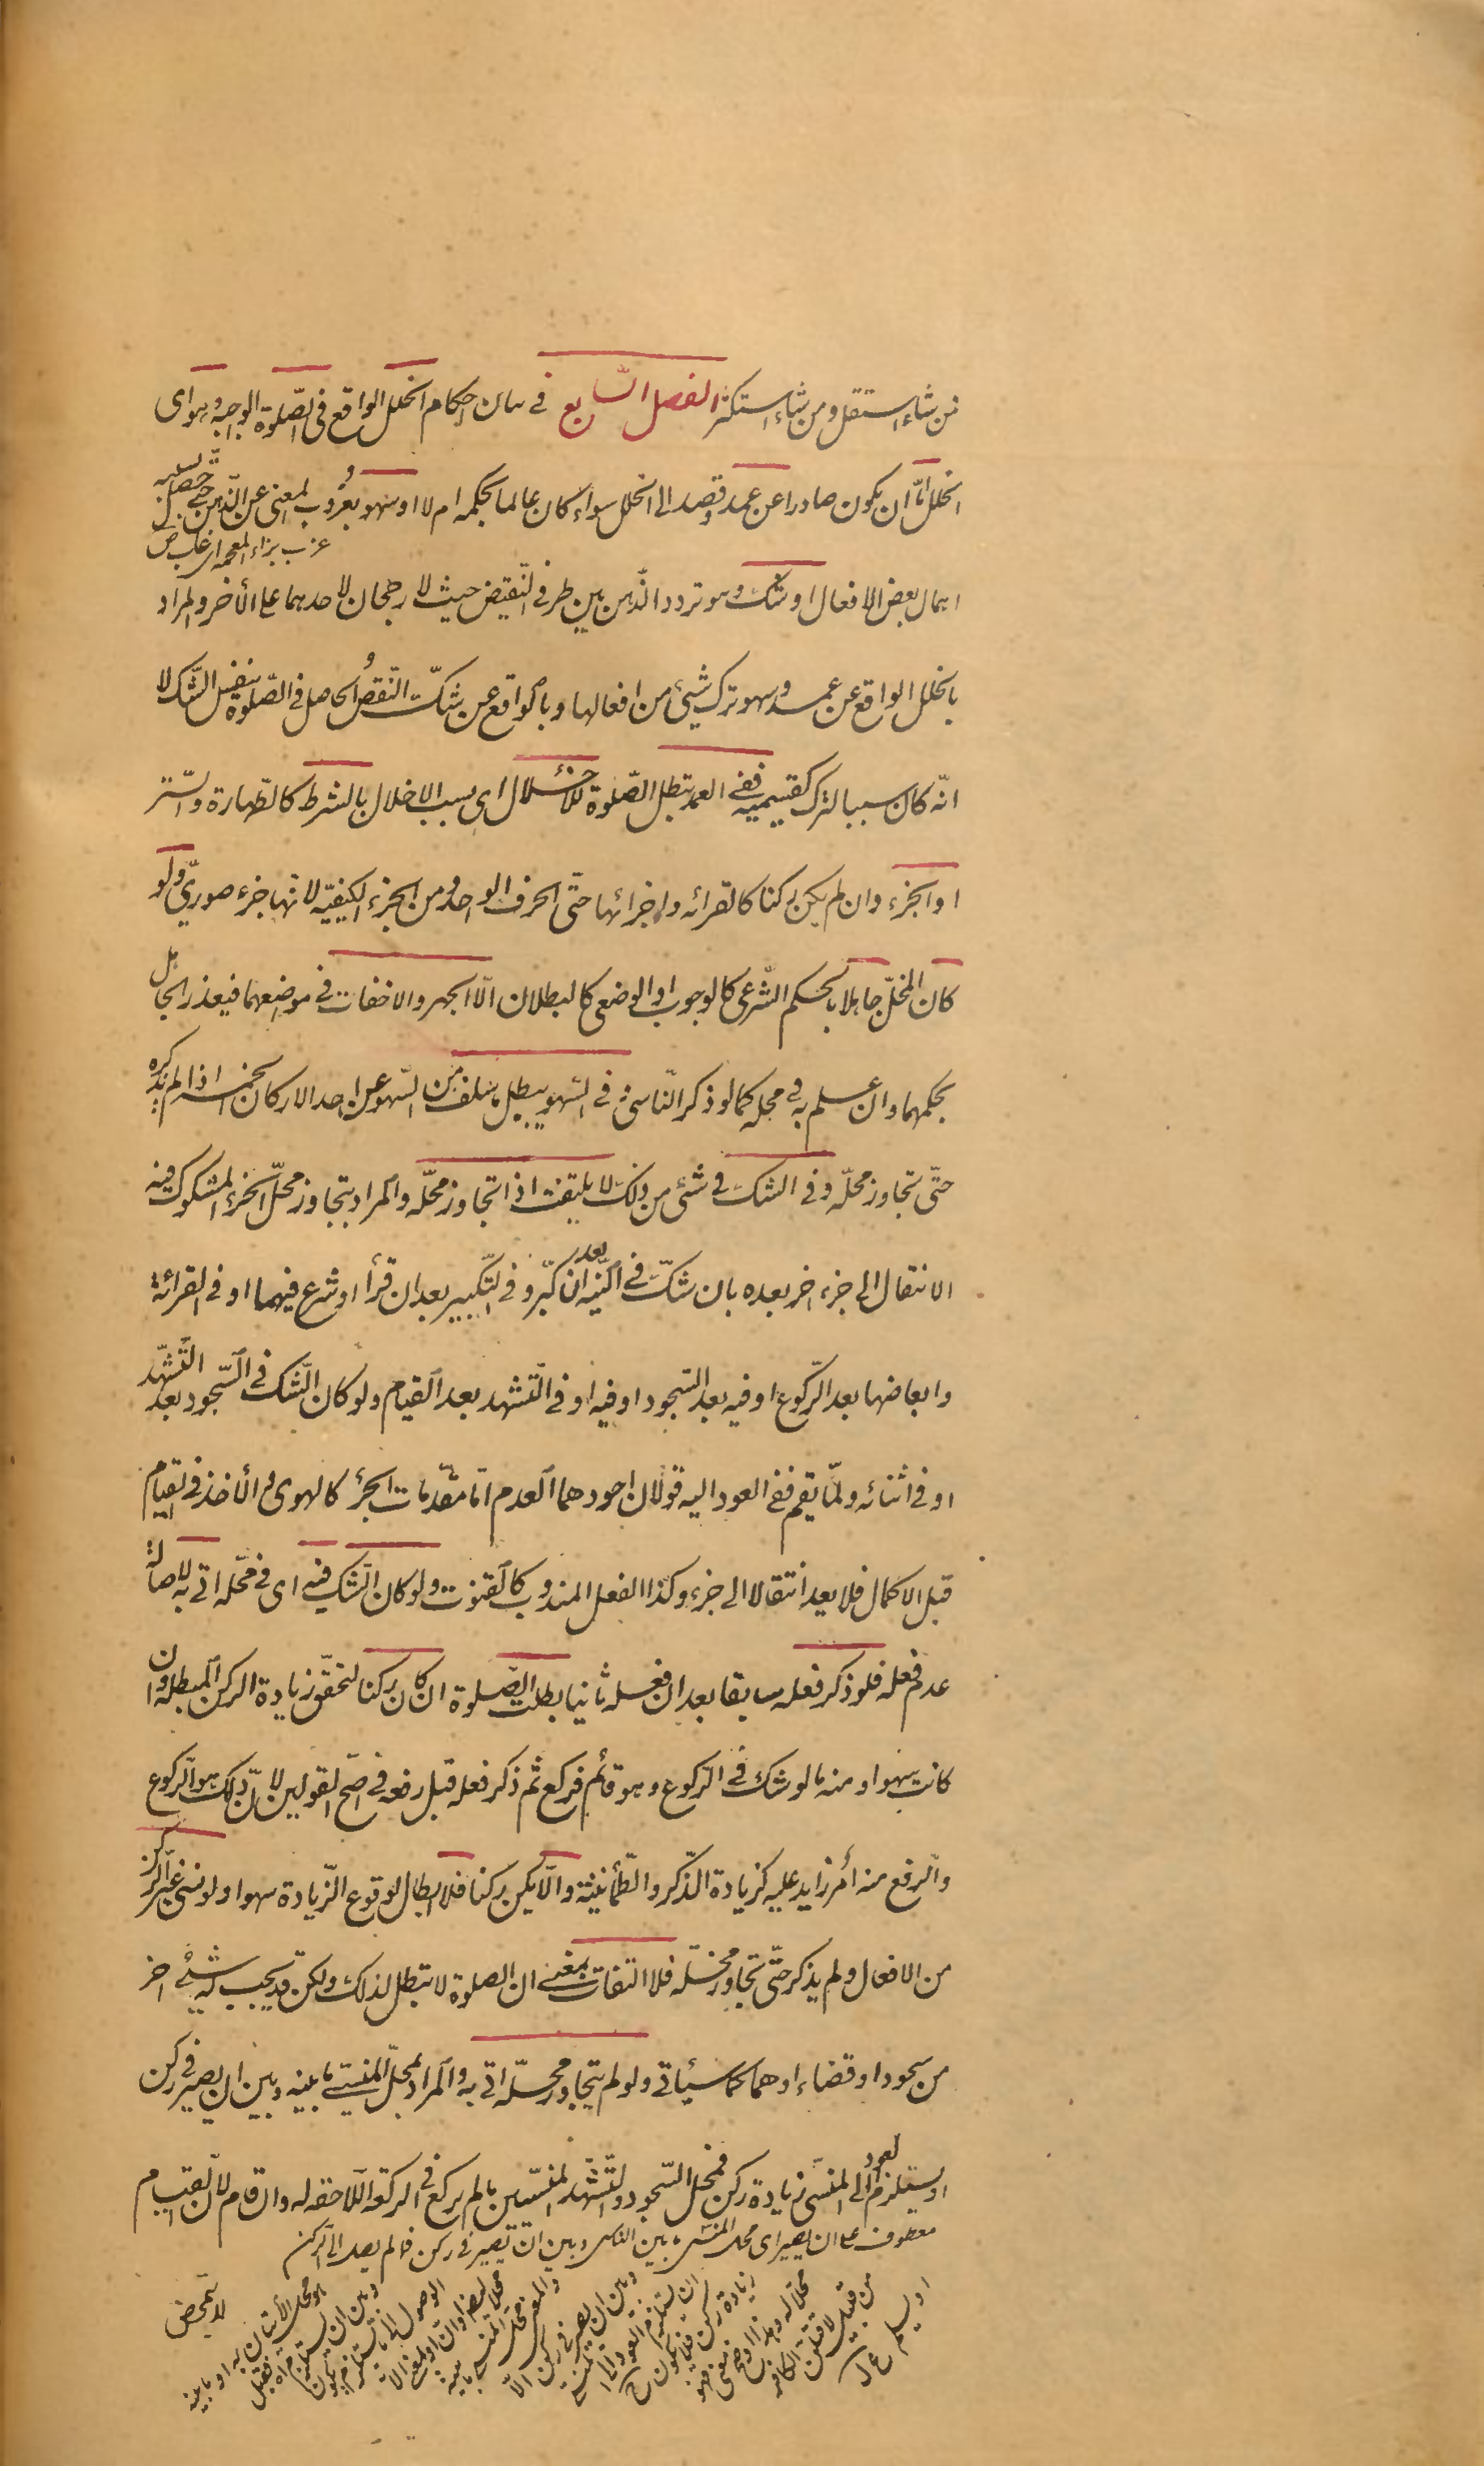 فمن شاء استقل ومن شاء استكثر الفصل السّابع فى بيان احكام الخلل الواقع فى الصّلوة الواجبة وهو اى
الخلل امّا ان يكون صادرا عن عمد وقصد الى الخلل سواء كان عالما بحكمه ام لا او سهو بعزوب المعنى عن الذّهن حتّى حصل بسببه
عزب بزاء المعجمة اى غاب ص
اهمال بعض الافعال او شك وهو تردد الذّهن بين طرفى النّقيض حيث لا رجحان لاحدهما على الأخر والمراد
بالخلل الواقع عن عمد وسهو ترك شيئ من افعالها وبالواقع عن شكّ النّقص الحاصل فى الصّلوة بنفس الشّك لا
انّه كان سببا لترك كقسيميه ففى العمد تبطل الصّلوة للاخلال اى بسبب الاخلال بالشرط كالطّهارة والسّتر
او الجزء وان لم يكن ركنا كالقرائة واجزائها حتّى الحرف الواحد ومن الجزء الكيفيّه لانها جزء صورىّ ولو
كان المخلّ جاهلا بالحكم الشّرعى كالوجوب او الوضعى كالبطلان الّا الجهر والاخفات فى موضعهما فيعذر الجاهل
بحكمهما وان علم به فى محله كما لو ذكر النّاسى فى السّهو يبطل ما سلف من السّهو عن احد الاركان الخمسة اذا لم يذكره
حتّى تجاوز محلّه وفى الشك فى شئ من ذلك لا يلتفت اذا تجاوز محلّه والمراد بتجاوز محلّ الجزء المشكوك فيه
الانتقال الى جزء اخر بعده بان شكّ فى النيّة بعد ان كبّر وفى التّكبير بعد ان قرأ او شرع فيهما او فى القرائة
وابعاضها بعد الرّكوع او فيه بعد السّجود او فيه او فى التّشهد بعد القيام ولو كان الشّك فى السّجود بعد التّشهّد
او فى اثنائه ولمّا يقم ففى العود اليه قولان اجودهما العدم امّا مقدّمات الجزء كالهوى والأخذ فى القيام
قبل الاكمال فلا يعد انتقالا الى جزء وكذا الفعل المندوب كالقنوت ولو كان الشّك فيه اى فى محّله اتى به لاصالة
عدم فعله فلو ذكر فعله سابقا بعد ان فعله ثانيا بطلت الصّلوة ان كان ركنا لتحقّق زيادة الركن المبطلة وان
كانت سهوا ومنه ما لو شك فى الرّكوع وهو قائم فركع ثم ذكر فعله قبل رفعه فى اصّح القولين لانّ ذلك هو الرّكوع
والرّفع منه أمر زايد عليه كزيادة الذّكر والطّمأنينة والّا يكن ركنا فلا ابطال لوقوع الزّيادة سهوا ولو نسى غير الرّكن
من الافعال ولم يذكر حتّى تجاوز محلّه فلا التفات بمعنى ان الصلوة لا تبطل لذلك ولكن قد يجب له شيئ اخر
من سجود او قضاء او هما كما سيأتى ولو لم يتجاوز محلّه اتى به والمراد بمحلّ المنسىّ ما بينه وبين ان يصير فى ركن
او يستلزم العود الى المنسىّ زيادة ركن فمحل السّجود والتّشهّد المنسيّين ما لم يركع فى الركعة اللّاحقة له وان قام لانّ القيام
معطوف على ان يصير اى محل المنسى ما بين الناسى وبين ان يصير فى ركن فما لم يصل الى الركن
لا يتمحّض